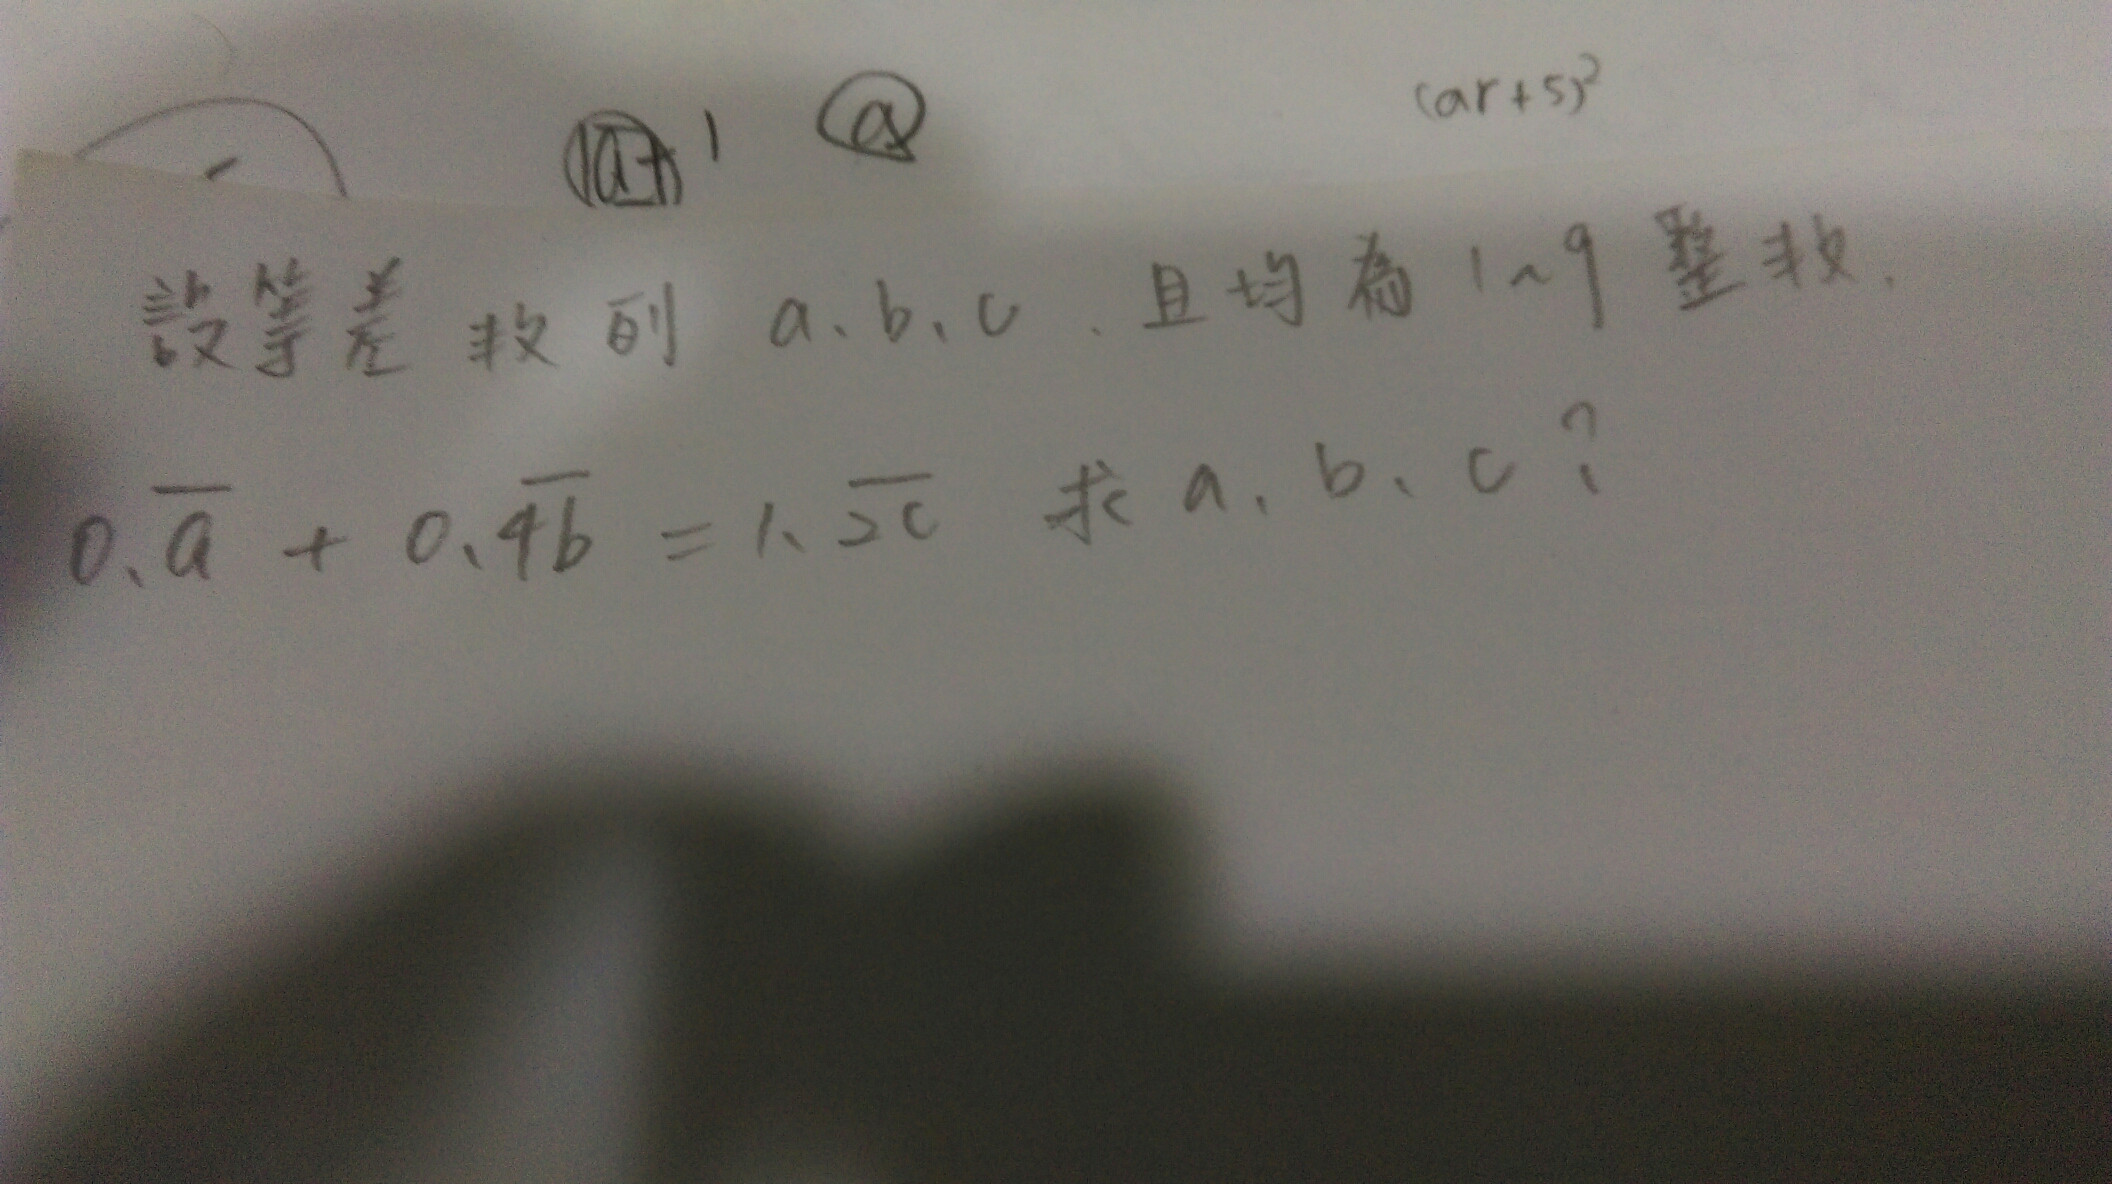 a+1 a (ar+5)²
設等差数列 a、b、c、且均為1~9整数.
0.a̅ + 0.4̅b̅ = 1.2̅c̅ 求a、b、c?